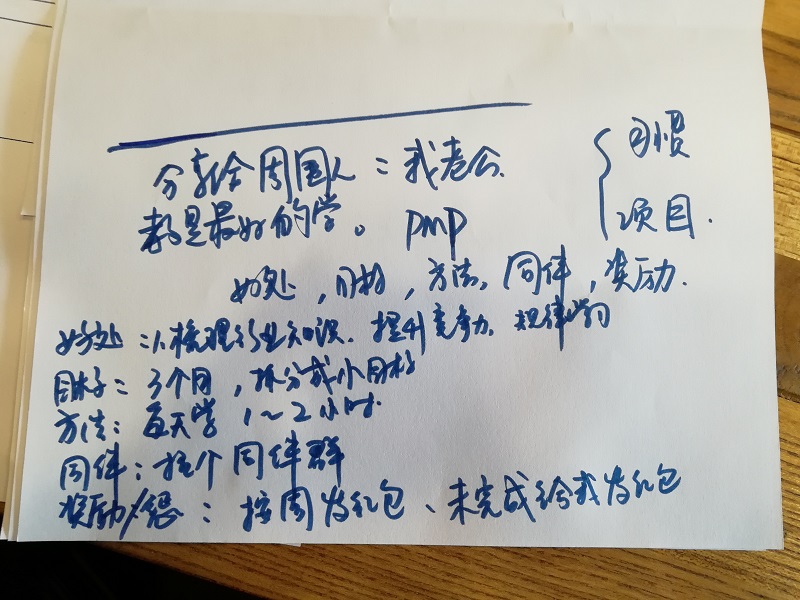 分享给周围人：我老公.
教是最好的学。PMP
习惯
项目.
好处，目标，方法，同伴，奖励.
好处：1、梳理行业知识. 提升竞争力. 规律学习
目标：3个月，拆分成小目标
方法：每天学 1～2小时.
同伴：找个同伴群
奖励/惩：按周发红包、未完成给我发红包